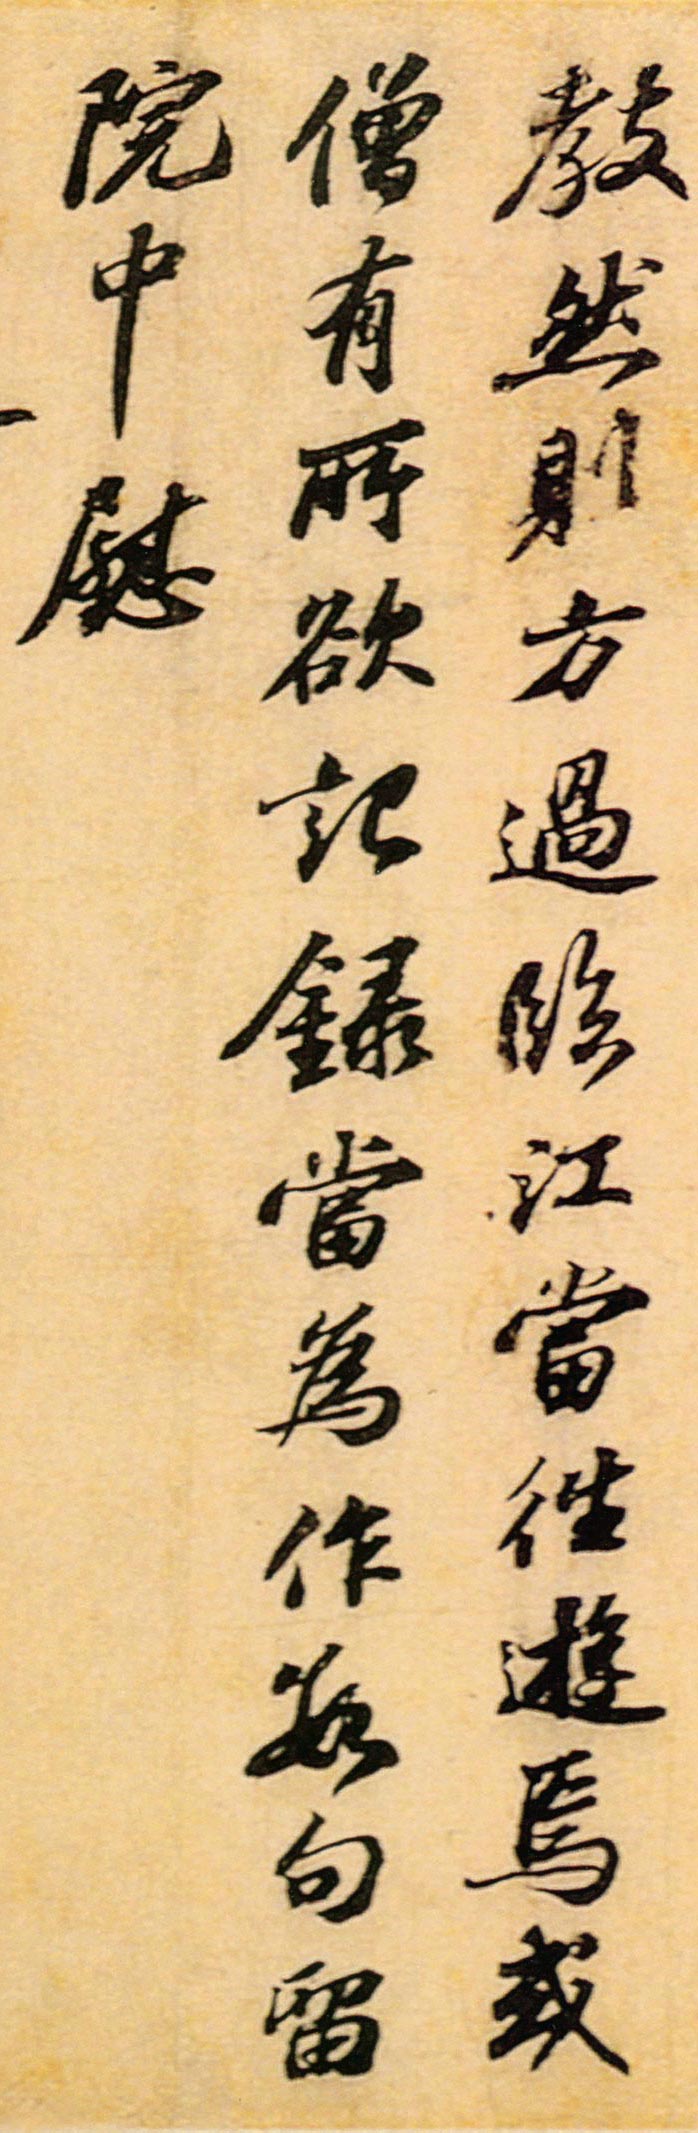 教然則方過臨江當徃遊焉或
僧有所欲記録當為作數句留
院中慰